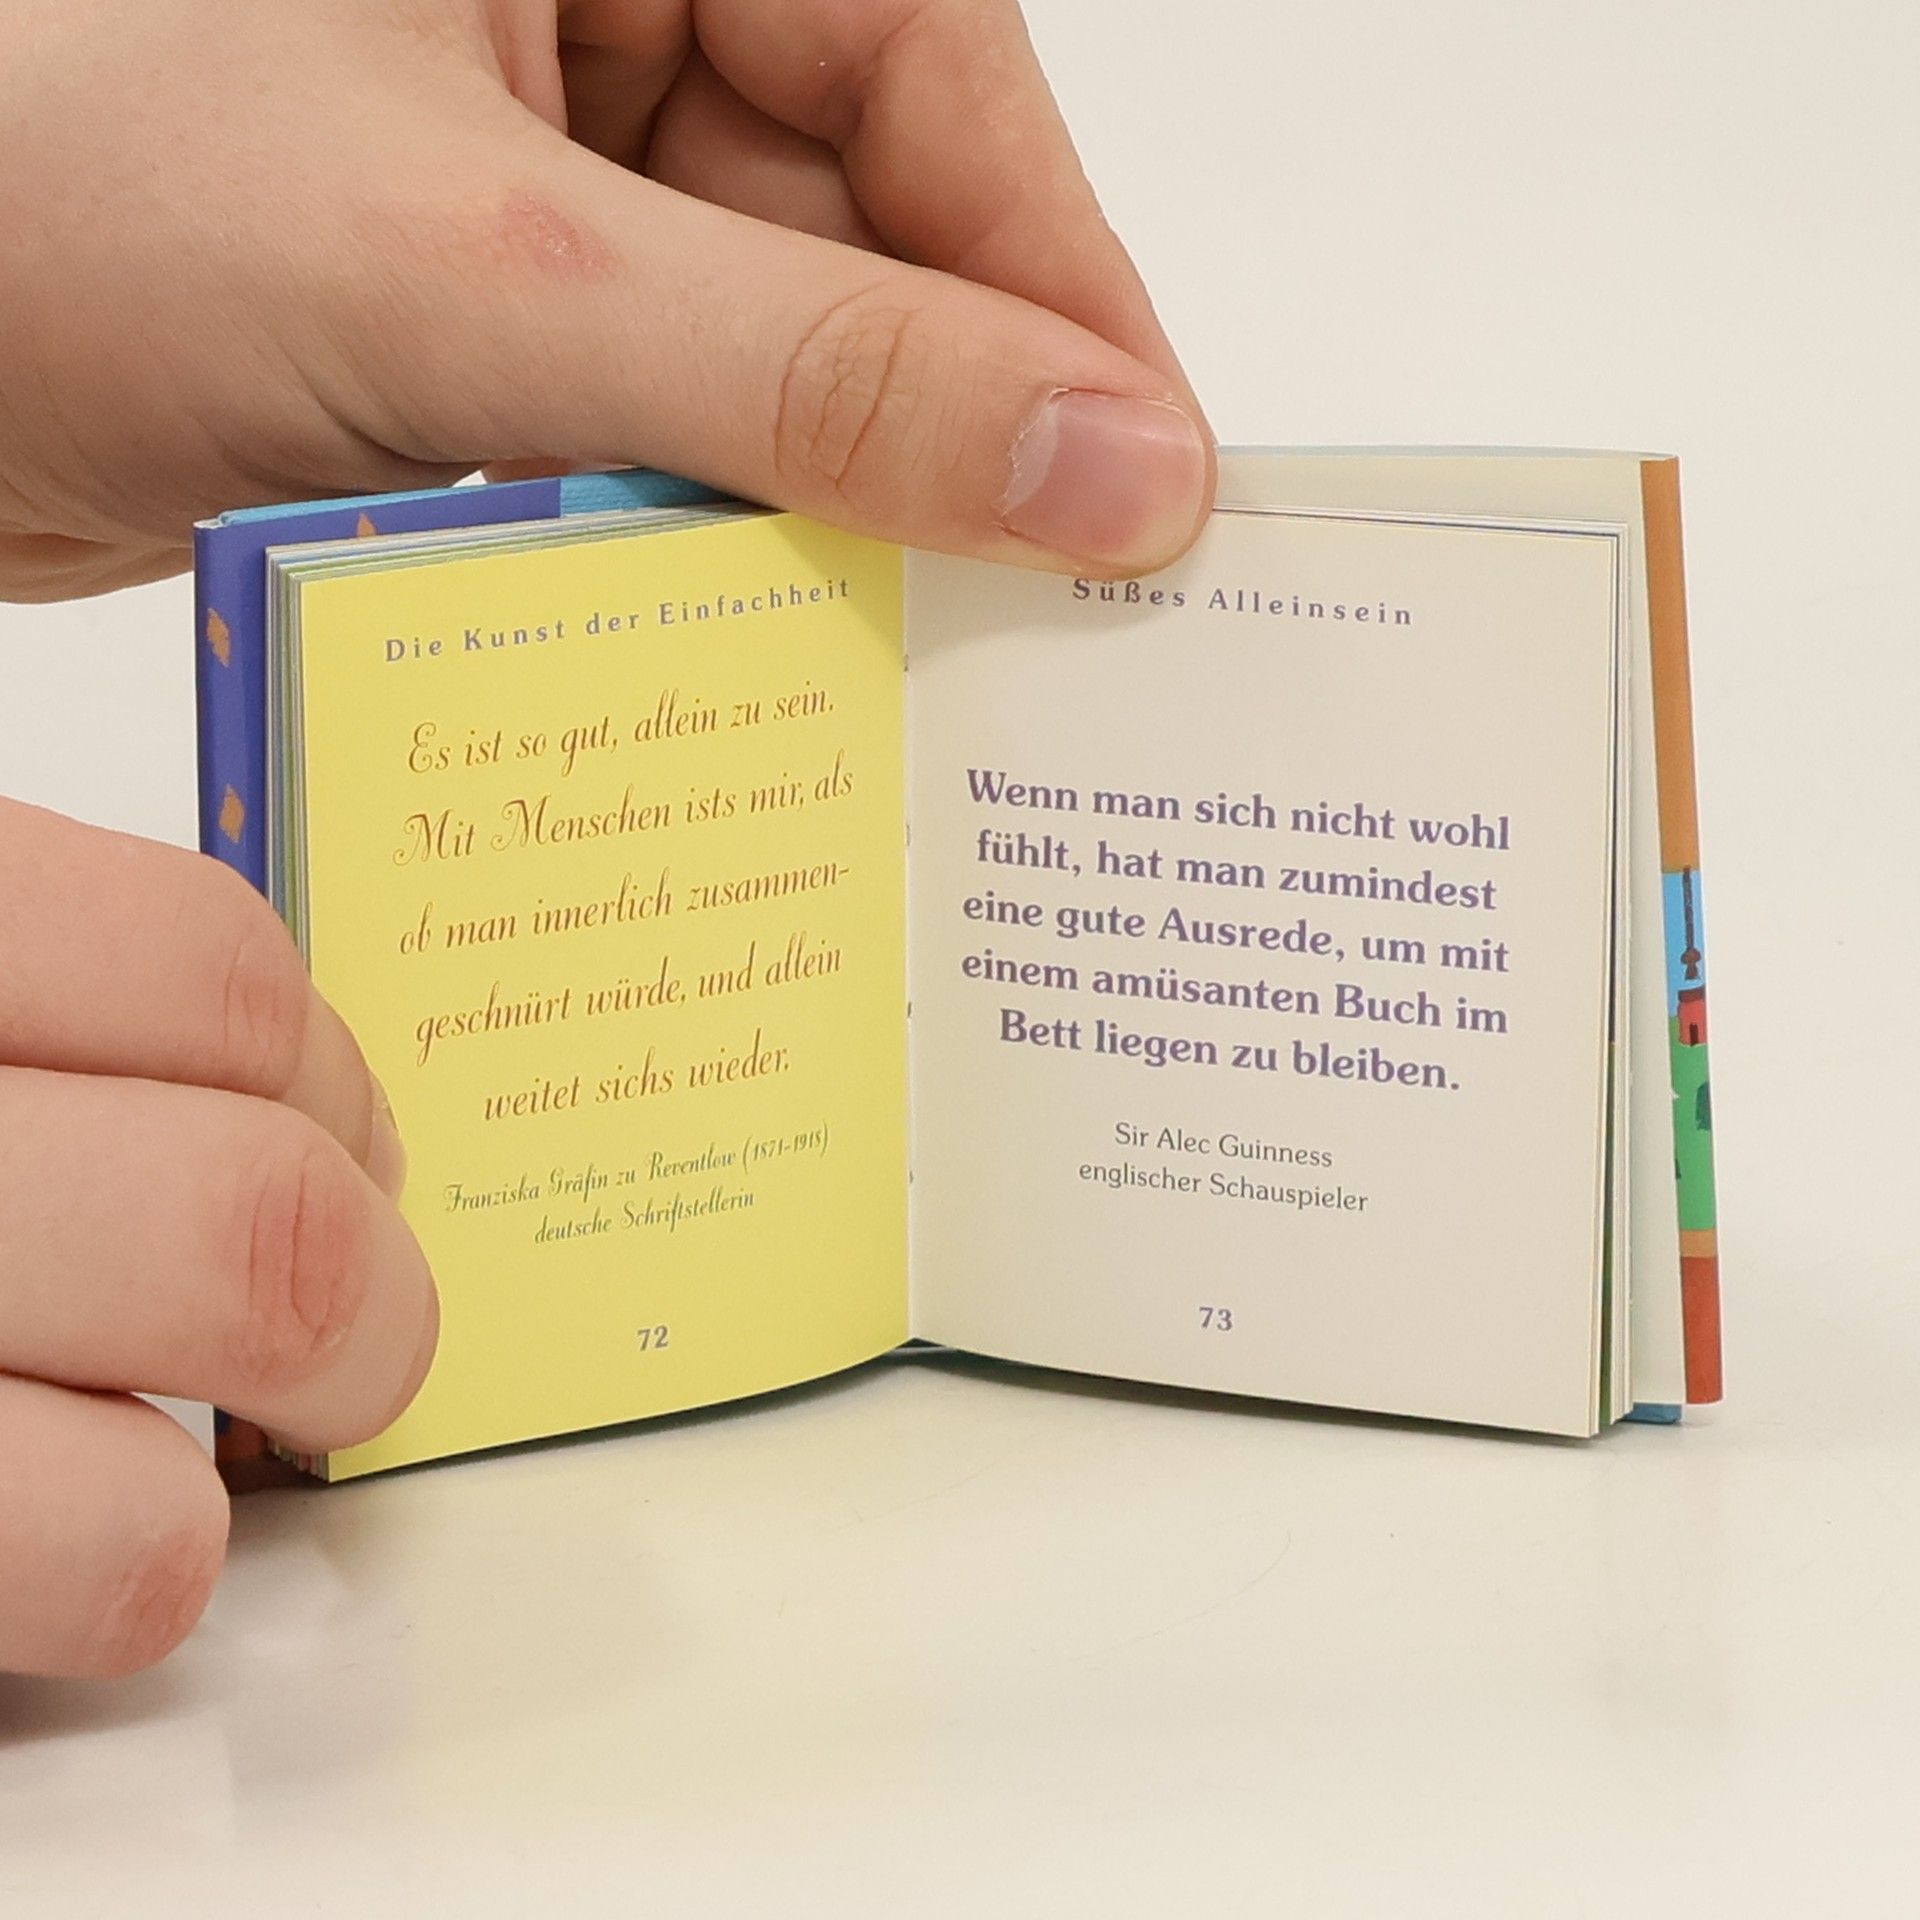 Die Kunst der Einfachheit
Es ist so gut, allein zu sein.
Mit Menschen ists mir, als
ob man innerlich zusammen-
geschnürt würde, und allein
weitet sichs wieder.
Franziska Gräfin zu Reventlow (1871-1918)
deutsche Schriftstellerin
72
Süßes Alleinsein
Wenn man sich nicht wohl
fühlt, hat man zumindest
eine gute Ausrede, um mit
einem amüsanten Buch im
Bett liegen zu bleiben.
Sir Alec Guinness
englischer Schauspieler
73